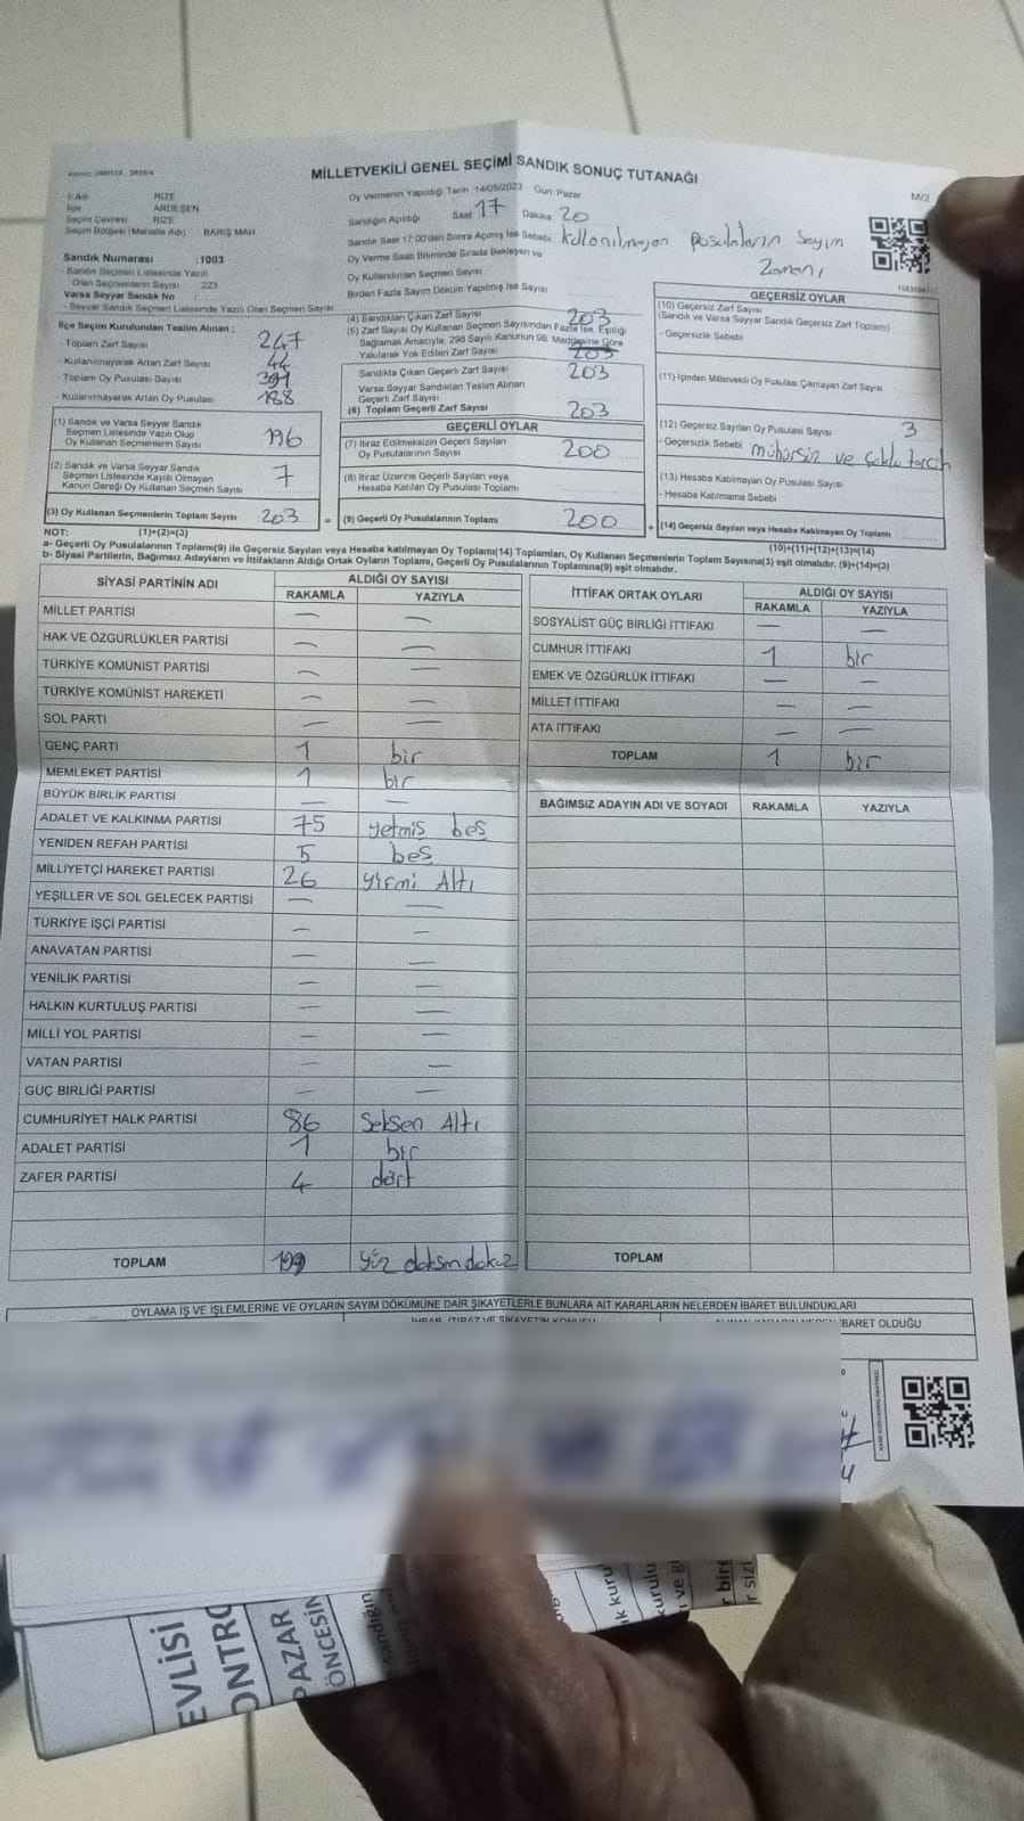 MİLLETVEKİLİ GENEL SEÇİMİ SANDIK SONUÇ TUTANAĞI
M/2
İli RİZE
İlçe ARDEŞEN
Seçim Çevresi RİZE
Seçim Bölgesi (Mahalle Adı) BARIŞ MAH
Sandık Numarası :1003
Sandık Seçmen Listesinde Yazılı
Olan Seçmenlerin Sayısı 223
Varsa Seyyar Sandık No
- Seyyar Sandık Seçmen Listesinde Yazılı Olan Seçmen Sayısı
Oy Vermenin Yapıldığı Tarih 14/05/2023 Gün Pazar
Sandığın Açıldığı Saat 17 Dakika 20
Sandık Saat 17:00'dan Sonra Açılmış İse Sebebi kullanılmayan pusulaların sayım
zamanı
Oy Verme Saati Bitiminde Sırada Bekleyen ve
Oy Kullandırılan Seçmen Sayısı
Birden Fazla Sayım Döküm Yapılmış İse Sayısı
İlçe Seçim Kurulundan Teslim Alınan :
- Toplam Zarf Sayısı 247
- Kullanılmayarak Artan Zarf Sayısı 44
- Toplam Oy Pusulası Sayısı 391
- Kullanılmayarak Artan Oy Pusulası 188
(1) Sandık ve Varsa Seyyar Sandık
Seçmen Listesinde Yazılı Olup
Oy Kullanan Seçmenlerin Sayısı 196
(2) Sandık ve Varsa Seyyar Sandık
Seçmen Listesinde Kayıtlı Olmayan
Kanun Gereği Oy Kullanan Seçmen Sayısı 7
(3) Oy Kullanan Seçmenlerin Toplam Sayısı 203
(1)+(2)=(3)
(4) Sandıktan Çıkan Zarf Sayısı 203
(5) Zarf Sayısı Oy Kullanan Seçmen Sayısından Fazla İse, Eşitliği
Sağlamak Amacıyla, 298 Sayılı Kanunun 98. Maddesine Göre
Yakılarak Yok Edilen Zarf Sayısı 203
Sandıkta Çıkan Geçerli Zarf Sayısı 203
Varsa Seyyar Sandıktan Teslim Alınan
Geçerli Zarf Sayısı
(6) Toplam Geçerli Zarf Sayısı 203
GEÇERLİ OYLAR
(7) İtiraz Edilmeksizin Geçerli Sayılan
Oy Pusulalarının Sayısı 200
(8) İtiraz Üzerine Geçerli Sayılan veya
Hesaba Katılan Oy Pusulası Toplamı
= (9) Geçerli Oy Pusulalarının Toplamı 200
GEÇERSİZ OYLAR
(10) Geçersiz Zarf Sayısı
(Sandık ve Varsa Seyyar Sandık Geçersiz Zarf Toplamı)
- Geçersizlik Sebebi
(11) İçinden Milletvekili Oy Pusulası Çıkmayan Zarf Sayısı
(12) Geçersiz Sayılan Oy Pusulası Sayısı 3
- Geçersizlik Sebebi mühürsüz ve çoklu tercih
(13) Hesaba Katılmayan Oy Pusulası Sayısı
- Hesaba Katılmama Sebebi
+ (14) Geçersiz Sayılan veya Hesaba Katılmayan Oy Toplamı
(10)+(11)+(12)+(13)=(14)
NOT:
a- Geçerli Oy Pusulalarının Toplamı(9) ile Geçersiz Sayılan veya Hesaba katılmayan Oy Toplamı(14) Toplamları, Oy Kullanan Seçmenlerin Toplam Sayısına(3) eşit olmalıdır. (9)+(14)=(3)
b- Siyasi Partilerin, Bağımsız Adayların ve İttifakların Aldığı Ortak Oyların Toplamı, Geçerli Oy Pusulalarının Toplamına(9) eşit olmalıdır.
SİYASİ PARTİNİN ADI ALDIĞI OY SAYISI
RAKAMLA YAZIYLA
MİLLET PARTİSİ — —
HAK VE ÖZGÜRLÜKLER PARTİSİ — —
TÜRKİYE KOMÜNİST PARTİSİ — —
TÜRKİYE KOMÜNİST HAREKETİ — —
SOL PARTİ — —
GENÇ PARTİ 1 bir
MEMLEKET PARTİSİ 1 bir
BÜYÜK BİRLİK PARTİSİ — —
ADALET VE KALKINMA PARTİSİ 75 yetmiş beş
YENİDEN REFAH PARTİSİ 5 beş
MİLLİYETÇİ HAREKET PARTİSİ 26 yirmi Altı
YEŞİLLER VE SOL GELECEK PARTİSİ — —
TÜRKİYE İŞÇİ PARTİSİ — —
ANAVATAN PARTİSİ — —
YENİLİK PARTİSİ — —
HALKIN KURTULUŞ PARTİSİ — —
MİLLİ YOL PARTİSİ — —
VATAN PARTİSİ — —
GÜÇ BİRLİĞİ PARTİSİ — —
CUMHURİYET HALK PARTİSİ 86 Seksen Altı
ADALET PARTİSİ 1 bir
ZAFER PARTİSİ 4 dört
TOPLAM 199 yüz doksan dokuz
İTTİFAK ORTAK OYLARI ALDIĞI OY SAYISI
RAKAMLA YAZIYLA
SOSYALİST GÜÇ BİRLİĞİ İTTİFAKI — —
CUMHUR İTTİFAKI 1 bir
EMEK VE ÖZGÜRLÜK İTTİFAKI — —
MİLLET İTTİFAKI — —
ATA İTTİFAKI — —
TOPLAM 1 bir
BAĞIMSIZ ADAYIN ADI VE SOYADI RAKAMLA YAZIYLA
TOPLAM
OYLAMA İŞ VE İŞLEMLERİNE VE OYLARIN SAYIM DÖKÜMÜNE DAİR ŞİKAYETLERLE BUNLARA AİT KARARLARIN NELERDEN İBARET BULUNDUKLARI
İBARET OLDUĞU
EVLİSİ
ONTRO
PAZAR
ÖNCESİN
k kuru
kurulu
ve gi
r bire
r sizi